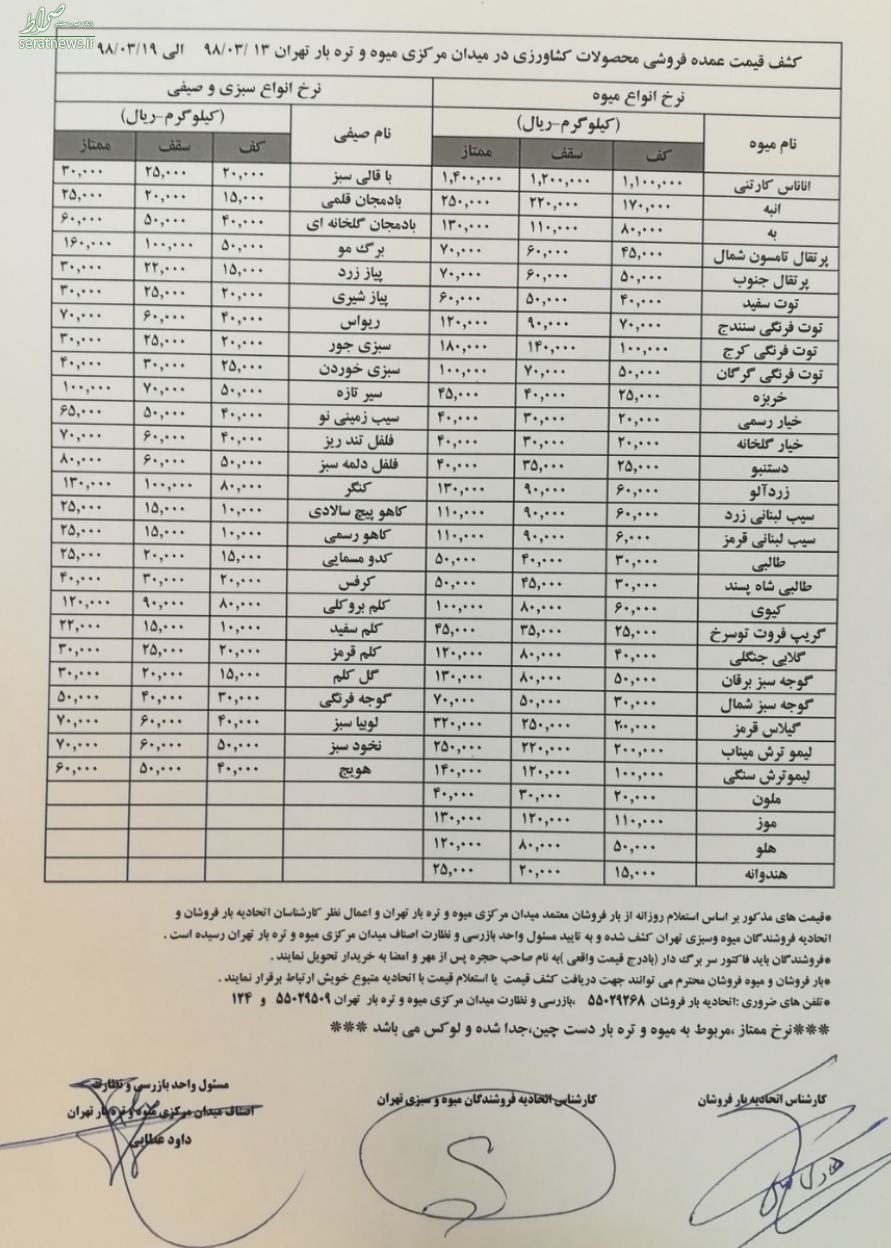 صراط
seratnews.ir
کشف قیمت عمده فروشی محصولات کشاورزی در میدان مرکزی میوه و تره بار تهران ۱۳ /۹۸/۰۳ الی ۹۸/۰۳/۱۹
نرخ انواع میوه
نام میوه (کیلوگرم-ریال)
کف سقف ممتاز
اناناس کارتنی ۱,۱۰۰,۰۰۰ ۱,۲۰۰,۰۰۰ ۱,۴۰۰,۰۰۰
انبه ۱۷۰,۰۰۰ ۲۲۰,۰۰۰ ۲۵۰,۰۰۰
به ۸۰,۰۰۰ ۱۱۰,۰۰۰ ۱۳۰,۰۰۰
پرتقال تامسون شمال ۴۵,۰۰۰ ۶۰,۰۰۰ ۷۰,۰۰۰
پرتقال جنوب ۵۰,۰۰۰ ۶۰,۰۰۰ ۷۰,۰۰۰
توت سفید ۴۰,۰۰۰ ۵۰,۰۰۰ ۶۰,۰۰۰
توت فرنگی سنندج ۷۰,۰۰۰ ۹۰,۰۰۰ ۱۲۰,۰۰۰
توت فرنگی کرج ۱۰۰,۰۰۰ ۱۴۰,۰۰۰ ۱۸۰,۰۰۰
توت فرنگی گرگان ۵۰,۰۰۰ ۷۰,۰۰۰ ۱۰۰,۰۰۰
خربزه ۲۵,۰۰۰ ۴۰,۰۰۰ ۴۵,۰۰۰
خیار رسمی ۲۰,۰۰۰ ۳۰,۰۰۰ ۴۰,۰۰۰
خیار گلخانه ۲۰,۰۰۰ ۳۰,۰۰۰ ۴۰,۰۰۰
دستنبو ۲۵,۰۰۰ ۳۵,۰۰۰ ۴۰,۰۰۰
زردآلو ۶۰,۰۰۰ ۹۰,۰۰۰ ۱۳۰,۰۰۰
سیب لبنانی زرد ۶۰,۰۰۰ ۹۰,۰۰۰ ۱۱۰,۰۰۰
سیب لبنانی قرمز ۶,۰۰۰ ۹۰,۰۰۰ ۱۱۰,۰۰۰
طالبی ۳۰,۰۰۰ ۴۰,۰۰۰ ۵۰,۰۰۰
طالبی شاه پسند ۳۰,۰۰۰ ۴۵,۰۰۰ ۵۰,۰۰۰
کیوی ۶۰,۰۰۰ ۸۰,۰۰۰ ۱۰۰,۰۰۰
گریپ فروت توسرخ ۲۵,۰۰۰ ۳۵,۰۰۰ ۴۵,۰۰۰
گلابی جنگلی ۴۰,۰۰۰ ۸۰,۰۰۰ ۱۲۰,۰۰۰
گوجه سبز برقان ۵۰,۰۰۰ ۸۰,۰۰۰ ۱۳۰,۰۰۰
گوجه سبز شمال ۳۰,۰۰۰ ۵۰,۰۰۰ ۷۰,۰۰۰
گیلاس قرمز ۲۰۰,۰۰۰ ۲۵۰,۰۰۰ ۳۲۰,۰۰۰
لیمو ترش میناب ۲۰۰,۰۰۰ ۲۲۰,۰۰۰ ۲۵۰,۰۰۰
لیموترش سنگی ۱۰۰,۰۰۰ ۱۲۰,۰۰۰ ۱۴۰,۰۰۰
ملون ۲۰,۰۰۰ ۳۰,۰۰۰ ۴۰,۰۰۰
موز ۱۱۰,۰۰۰ ۱۲۰,۰۰۰ ۱۳۰,۰۰۰
هلو ۵۰,۰۰۰ ۸۰,۰۰۰ ۱۲۰,۰۰۰
هندوانه ۱۵,۰۰۰ ۲۰,۰۰۰ ۲۵,۰۰۰
نرخ انواع سبزی و صیفی
نام صیفی (کیلوگرم-ریال)
کف سقف ممتاز
با قالی سبز ۲۰,۰۰۰ ۲۵,۰۰۰ ۳۰,۰۰۰
بادمجان قلمی ۱۵,۰۰۰ ۲۰,۰۰۰ ۲۵,۰۰۰
بادمجان گلخانه ای ۴۰,۰۰۰ ۵۰,۰۰۰ ۶۰,۰۰۰
برگ مو ۵۰,۰۰۰ ۱۰۰,۰۰۰ ۱۶۰,۰۰۰
پیاز زرد ۱۵,۰۰۰ ۲۲,۰۰۰ ۳۰,۰۰۰
پیاز شیری ۲۰,۰۰۰ ۲۵,۰۰۰ ۳۰,۰۰۰
ریواس ۴۰,۰۰۰ ۶۰,۰۰۰ ۷۰,۰۰۰
سبزی جور ۲۰,۰۰۰ ۲۵,۰۰۰ ۳۰,۰۰۰
سبزی خوردن ۲۵,۰۰۰ ۳۰,۰۰۰ ۴۰,۰۰۰
سیر تازه ۵۰,۰۰۰ ۷۰,۰۰۰ ۱۰۰,۰۰۰
سیب زمینی نو ۴۰,۰۰۰ ۵۰,۰۰۰ ۶۵,۰۰۰
فلفل تند ریز ۴۰,۰۰۰ ۶۰,۰۰۰ ۷۰,۰۰۰
فلفل دلمه سبز ۵۰,۰۰۰ ۶۰,۰۰۰ ۸۰,۰۰۰
کنگر ۸۰,۰۰۰ ۱۰۰,۰۰۰ ۱۳۰,۰۰۰
کاهو پیچ سالادی ۱۰,۰۰۰ ۱۵,۰۰۰ ۲۵,۰۰۰
کاهو رسمی ۱۰,۰۰۰ ۱۵,۰۰۰ ۲۵,۰۰۰
کدو مسمایی ۱۵,۰۰۰ ۲۰,۰۰۰ ۲۵,۰۰۰
کرفس ۲۰,۰۰۰ ۳۰,۰۰۰ ۴۰,۰۰۰
کلم بروکلی ۸۰,۰۰۰ ۹۰,۰۰۰ ۱۲۰,۰۰۰
کلم سفید ۱۰,۰۰۰ ۱۵,۰۰۰ ۲۲,۰۰۰
کلم قرمز ۲۰,۰۰۰ ۲۵,۰۰۰ ۳۰,۰۰۰
گل کلم ۱۵,۰۰۰ ۲۰,۰۰۰ ۳۰,۰۰۰
گوجه فرنگی ۳۰,۰۰۰ ۴۰,۰۰۰ ۵۰,۰۰۰
لوبیا سبز ۴۰,۰۰۰ ۶۰,۰۰۰ ۷۰,۰۰۰
نخود سبز ۵۰,۰۰۰ ۶۰,۰۰۰ ۷۰,۰۰۰
هویج ۴۰,۰۰۰ ۵۰,۰۰۰ ۶۰,۰۰۰
*قیمت های مذکور بر اساس استعلام روزانه از بار فروشان معتمد میدان مرکزی میوه و تره بار تهران و اعمال نظر کارشناسان اتحادیه بار فروشان و
اتحادیه فروشندگان میوه وسبزی تهران کشف شده و به تایید مسئول واحد بازرسی و نظارت اصناف میدان مرکزی میوه و تره بار تهران رسیده است .
*فروشندگان باید فاکتور سر برگ دار (بادرج قیمت واقعی )به نام صاحب حجره پس از مهر و امضا به خریدار تحویل نمایند .
*بار فروشان و میوه فروشان محترم می توانند جهت دریافت کشف قیمت یا استعلام قیمت با اتحادیه متبوع خویش ارتباط برقرار نمایند .
*تلفن های ضروری :اتحادیه بار فروشان ۵۵۰۲۹۲۶۸ ،بازرسی و نظارت میدان مرکزی میوه و تره بار تهران ۵۵۰۲۹۵۰۹ و ۱۲۴
***نرخ ممتاز ،مربوط به میوه و تره بار دست چین،جدا شده و لوکس می باشد ***
کارشناس اتحادیه بار فروشان
کارشناس اتحادیه فروشندگان میوه و سبزی تهران
مسئول واحد بازرسی و نظارت
اصناف میدان مرکزی میوه و تره بار تهران
داود عطایی